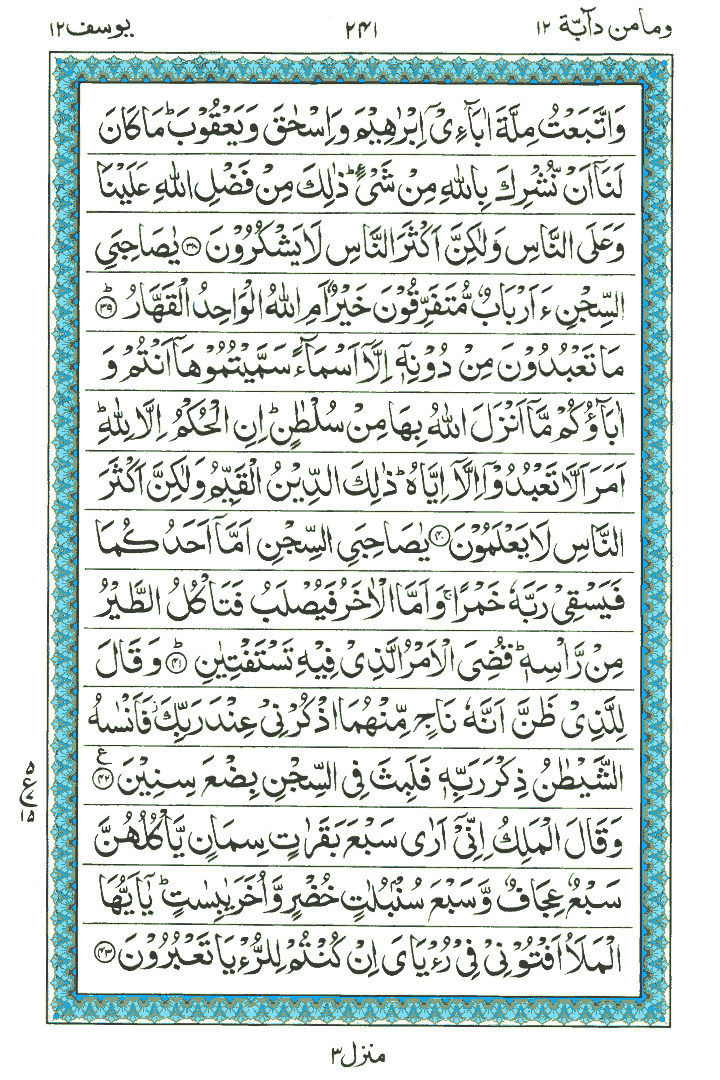 وما من دآبة ١٢
٢٤١
يوسف ١٢
وَاتَّبَعْتُ مِلَّةَ اٰبَآءِیْۤ اِبْرٰهِیْمَ وَاِسْحٰقَ وَیَعْقُوْبَ ؕ مَا كَانَ
لَنَاۤ اَنْ نُّشْرِكَ بِاللّٰهِ مِنْ شَیْءٍ ؕ ذٰلِكَ مِنْ فَضْلِ اللّٰهِ عَلَیْنَا
وَعَلَی النَّاسِ وَلٰكِنَّ اَكْثَرَ النَّاسِ لَا یَشْكُرُوْنَ ﴿۳۸﴾ یٰصَاحِبَیِ
السِّجْنِ ءَاَرْبَابٌ مُّتَفَرِّقُوْنَ خَیْرٌ اَمِ اللّٰهُ الْوَاحِدُ الْقَهَّارُ ﴿ؕ۳۹﴾
مَا تَعْبُدُوْنَ مِنْ دُوْنِهٖۤ اِلَّاۤ اَسْمَآءً سَمَّیْتُمُوْهَاۤ اَنْتُمْ وَ
اٰبَآؤُكُمْ مَّاۤ اَنْزَلَ اللّٰهُ بِهَا مِنْ سُلْطٰنٍ ؕ اِنِ الْحُكْمُ اِلَّا لِلّٰهِ ؕ
اَمَرَ اَلَّا تَعْبُدُوْۤا اِلَّاۤ اِیَّاهُ ؕ ذٰلِكَ الدِّیْنُ الْقَیِّمُ وَلٰكِنَّ اَكْثَرَ
النَّاسِ لَا یَعْلَمُوْنَ ﴿۴۰﴾ یٰصَاحِبَیِ السِّجْنِ اَمَّاۤ اَحَدُكُمَا
فَیَسْقِیْ رَبَّهٗ خَمْرًا ۚ وَاَمَّا الْاٰخَرُ فَیُصْلَبُ فَتَاْكُلُ الطَّیْرُ
مِنْ رَّاْسِهٖ ؕ قُضِیَ الْاَمْرُ الَّذِیْ فِیْهِ تَسْتَفْتِیٰنِ ﴿ؕ۴۱﴾ وَقَالَ
لِلَّذِیْ ظَنَّ اَنَّهٗ نَاجٍ مِّنْهُمَا اذْكُرْنِیْ عِنْدَ رَبِّكَ ؗ فَاَنْسٰىهُ
الشَّیْطٰنُ ذِكْرَ رَبِّهٖ فَلَبِثَ فِی السِّجْنِ بِضْعَ سِنِیْنَ ﴿۴۲﴾ ع
٥ ع ٧ ١٥
وَقَالَ الْمَلِكُ اِنِّیْۤ اَرٰی سَبْعَ بَقَرٰتٍ سِمَانٍ یَّاْكُلُهُنَّ
سَبْعٌ عِجَافٌ وَّسَبْعَ سُنْۢبُلٰتٍ خُضْرٍ وَّاُخَرَ یٰبِسٰتٍ ؕ یٰۤاَیُّهَا
الْمَلَاُ اَفْتُوْنِیْ فِیْ رُءْیَایَ اِنْ كُنْتُمْ لِلرُّءْیَا تَعْبُرُوْنَ ﴿۴۳﴾
منزل ٣